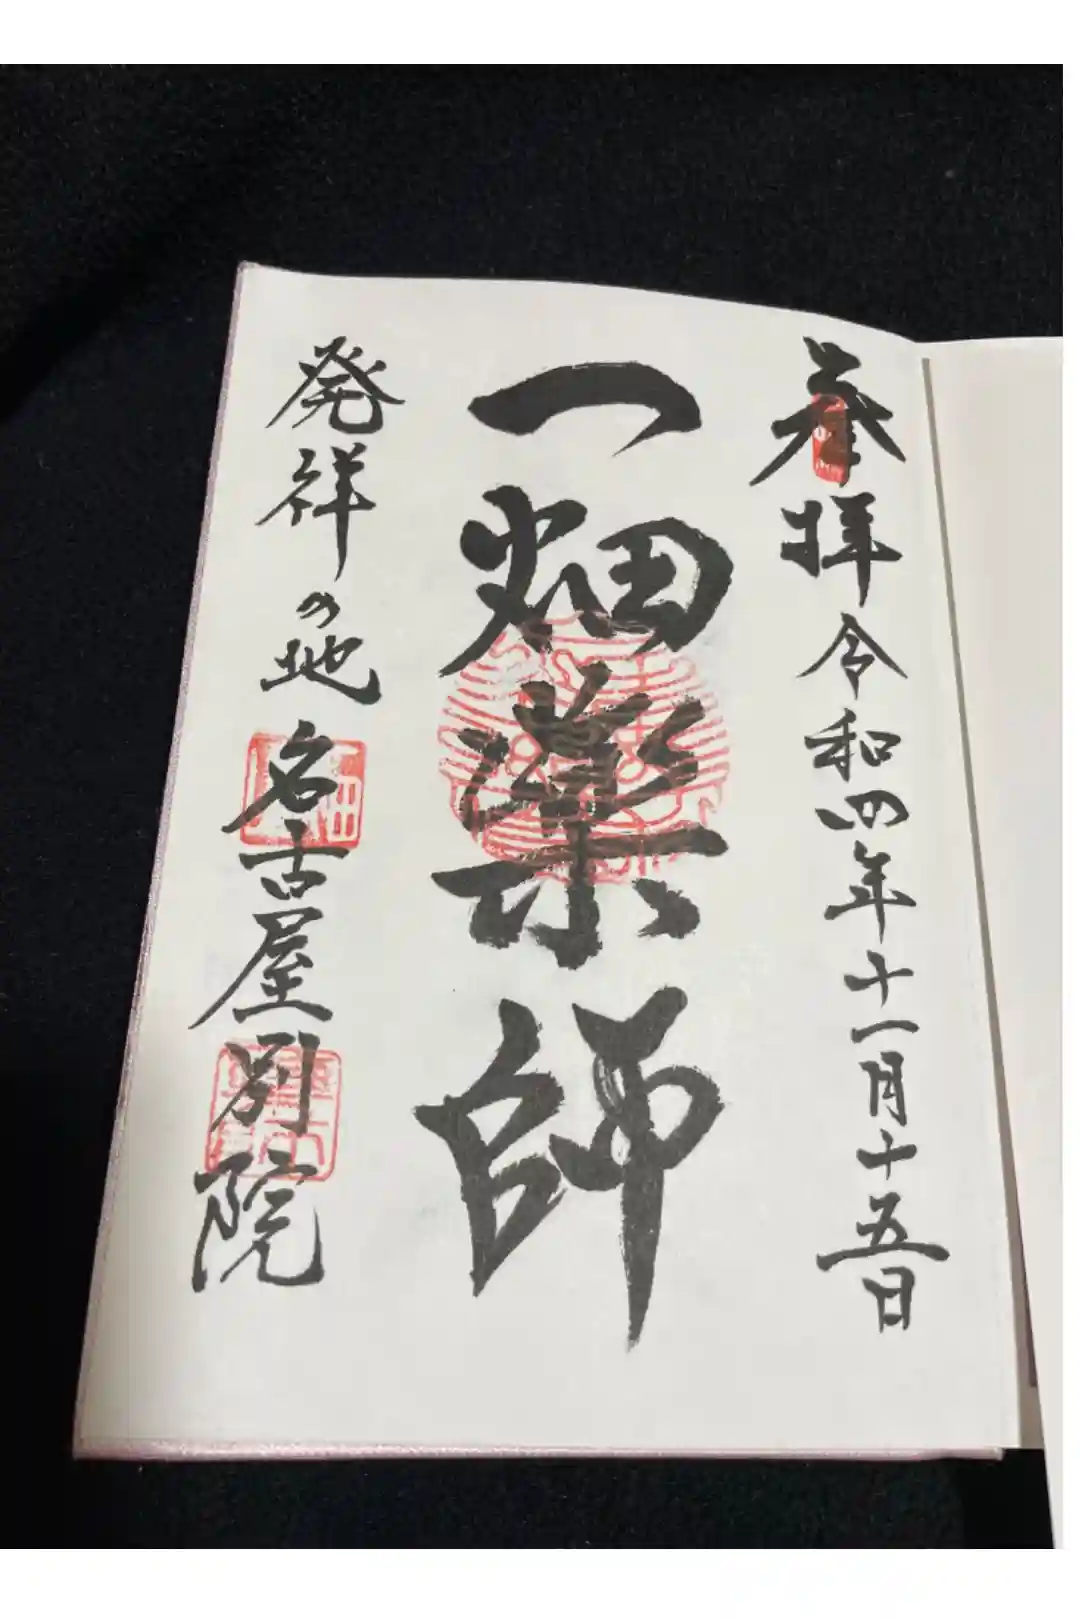 奉拝 令和四年十一月十五日
一畑薬師
発祥の地 名古屋別院